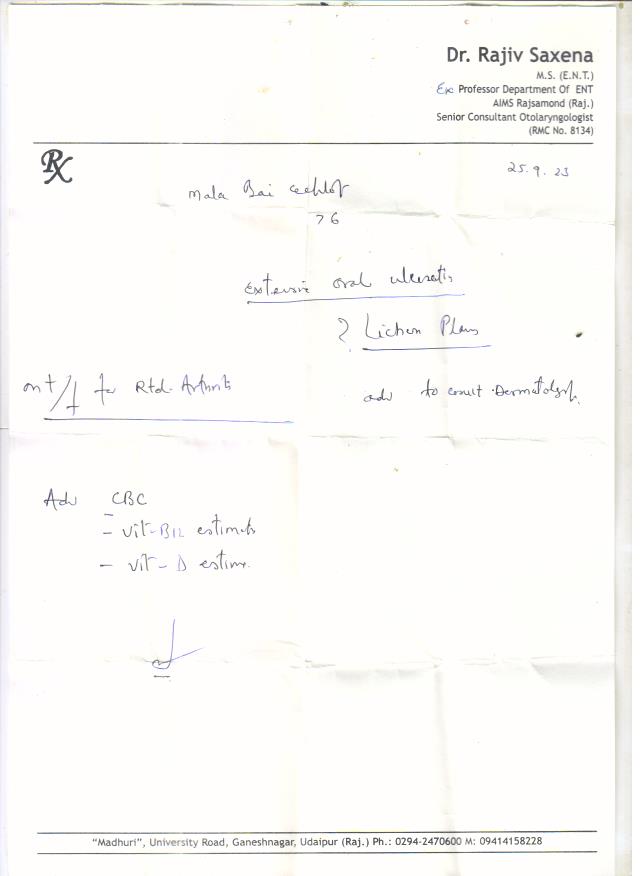 Dr. Rajiv Saxena
M.S. (E.N.T.)
Ex Professor Department Of ENT
AIMS Rajsamond (Raj.)
Senior Consultant Otolaryngologist
(RMC No. 8134)
Rx
25.9.23
Mala Bai
76
Extensive oral
? Lichen Plans
on t/t for Rtd. Arthrits
adv to consult Dermatologist.
Adv CBC
- Vit-B12
- Vit-D
"Madhuri", University Road, Ganeshnagar, Udaipur (Raj.) Ph.: 0294-2470600 M: 09414158228